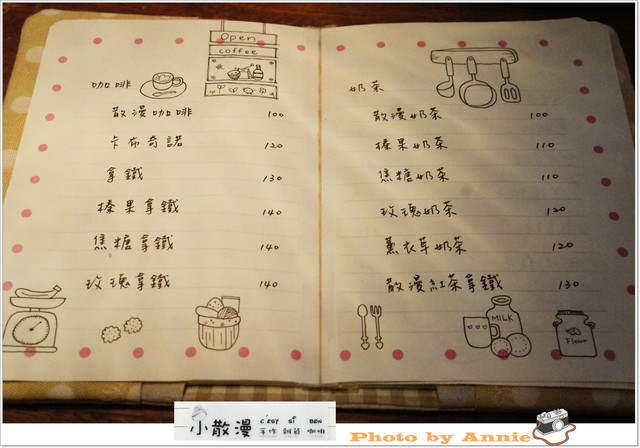 Open
coffee
咖啡
散漫咖啡 100
卡布奇諾 120
拿鐵 130
榛果拿鐵 140
焦糖拿鐵 140
玫瑰拿鐵 140
奶茶
散漫奶茶 100
榛果奶茶 110
焦糖奶茶 110
玫瑰奶茶 120
薰衣草奶茶 120
散漫紅茶拿鐵 130
MILK
Flour
小散漫
C'EST SI BON
手作 雜貨 咖啡
Photo by Annie